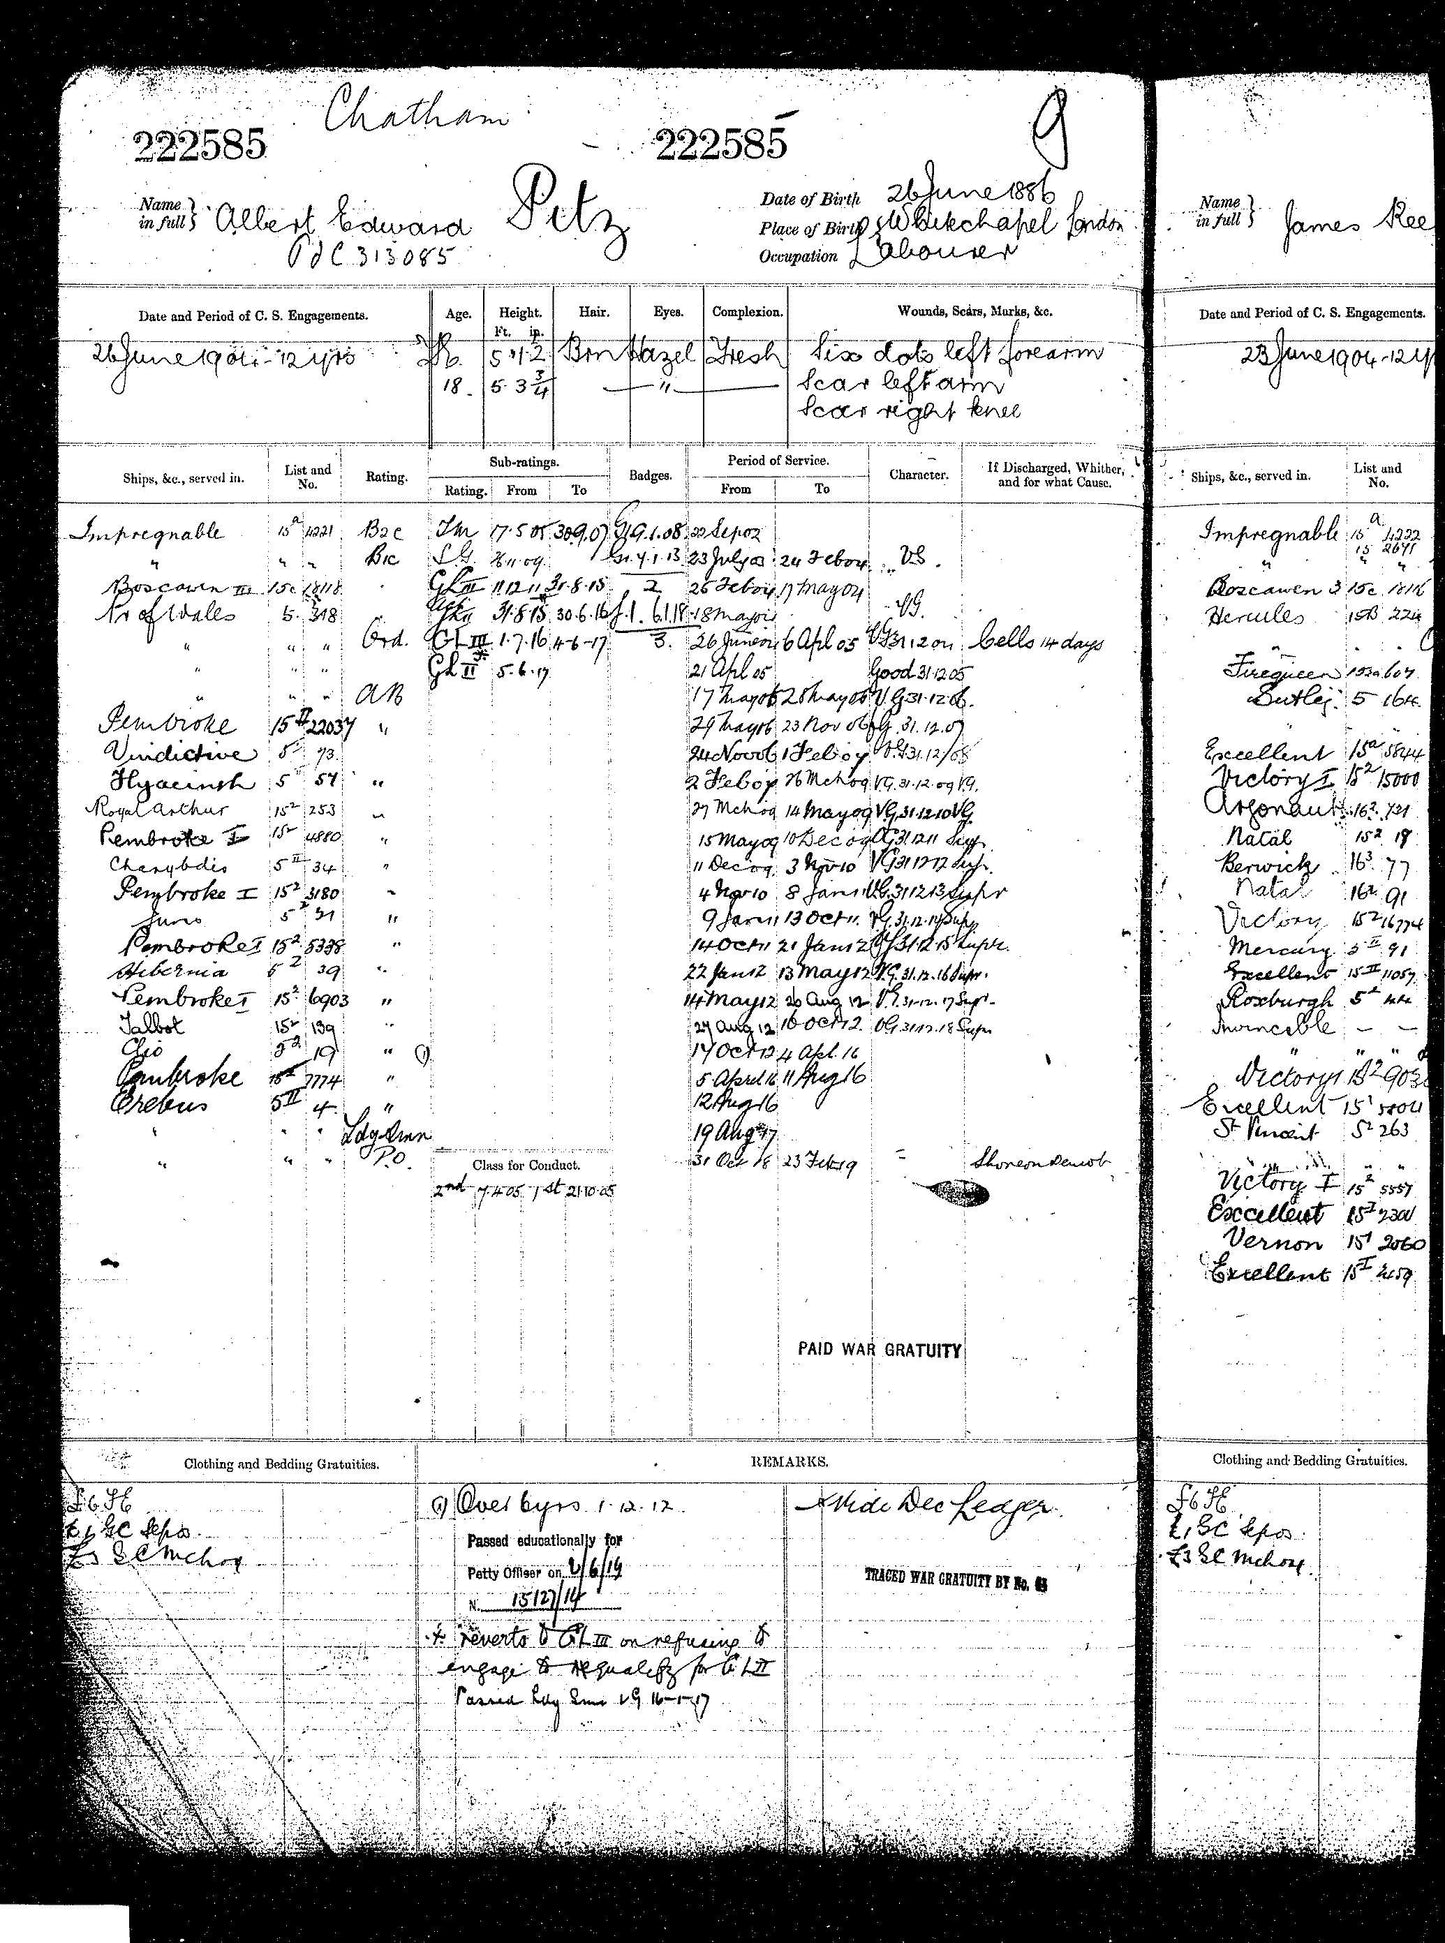 Chatham
222585 222585 9
Name in full } Albert Edward Petz
Date of Birth 26 June 1886
Place of Birth Whitechapel London
Occupation Labourer
PJC 313085
Date and Period of C. S. Engagements. Age. Height. Ft. in. Hair. Eyes. Complexion. Wounds, Scars, Marks, &c.
26 June 1904 - 12 yrs 5 Brn Hazel Fresh Six dots left forearm
18. 5. 3 3/4 " Scar left arm
Scar right knee
Ships, &c., served in. List and No. Rating. Sub-ratings. Rating. From To Badges. Period of Service. From To Character. If Discharged, Whither, and for what Cause.
Impregnable 15a 4221 B2c Tm 17.5.05 30.9.07 G.1 9.1.08 22 Sep 02
" " " B1c S.G. 9.1.13 23 July 03 24 Feb 04 V.G.
Boscawen III 15c 18118 GL III 11.12.11 31.8.15 2 25 Feb 04 17 May 04
Pr of Wales 5 318 31.8.15 30.6.16 6.1.18 18 May 04 VG.
" " " Ord. GL III 1.7.16 4-6-17 3. 26 June 04 6 Apl 05 VG 31 12 04 Cells 14 days
" " " GL II 5.6.17 21 Apl 05 Good 31.12.05
" " " AB 17 May 06 28 May 06 V.G. 31.12.06.
Pembroke 15 II 22037 " 29 May 06 23 Nov 06 VG. 31.12.07
Vindictive 5 73 24 Nov 06 1 Feb 07 VG 31/12/08
Hyacinth 5 57 " 2 Feb 07 26 Mch 09 VG. 31.12.09 VG.
Royal Arthur 15 2 253 " 27 Mch 09 14 May 09 VG. 31.12.10 VG
Pembroke I 15 2 4880 " 15 May 09 10 Dec 09 VG 31.12.11 Supr
Charybdis 5 II 34 " 11 Dec 09 3 Nov 10 VG 31 12 12 Supr.
Pembroke I 15 2 3180 " 4 Nov 10 8 Jan 11 VG. 31 12 13 Supr
Juno 5 2 31 " 9 Jan 11 13 Oct 11. VG. 31.12.14 Supr
Pembroke I 15 2 5338 " 14 Oct 11 21 Jan 12 VG 31.12.15 Supr.
Hibernia 5 2 39 " 22 Jan 12 13 May 12 VG. 31.12.16 Supr.
Pembroke I 15 2 6903 " 14 May 12 26 Aug 12 VG. 31.12.17 Supr.
Talbot 15 2 139 " 27 Aug 12 16 Oct 12. VG 31.12.18 Supr
Clio 5 2 19 " (1) 17 Oct 12 4 Apl. 16
Pembroke 15 I 7774 " 5 April 16 11 Aug 16
Erebus 5 II 4 " 12 Aug 16
" " " Ldg Smn 19 Aug 17
" " " P.O. 31 Oct 18 23 Feb 19 Shore on Demob
Class for Conduct.
2nd 7.4.05 1st 21.10.05
PAID WAR GRATUITY
Clothing and Bedding Gratuities. REMARKS.
(1) Over 6 yrs 1.12.12.
Vide Dec Ledger.
Passed educationally for
Petty Officer on 2/6/14
N. 15127/14
TRACED WAR GRATUITY BY No.
* reverts to GL III on refusing to
engage to requalify for GL II
Passed Ldg Smn VG 16-1-17
Name in full } James
Date and Period of C. S. Engagements.
23 June 1904 - 12 y
Ships, &c., served in. List and No.
Impregnable 15 a 4222
" 15 2671
Boscawen 3 15c 18116
Hercules 15B 224
Firequeen 607
Sutlej. 5 164
Excellent 15a 5844
Victory I 15 2 15000
Argonaut 16 2. 721
Natal 15 2 18
Berwick 16 3. 77
Natal 16 2. 91
Victory 15 2 16774
Mercury 5 II 91
Excellent 15 II 11057
Roxburgh 5 2 44
Invincible - -
Victory 15 2 903
Excellent 15 1 5804
St Vincent 5 2 263
Victory I 15 2 5557
Excellent 15 I 2301
Vernon 15 1 2060
Excellent 15 I 2459
Clothing and Bedding Gratuities.